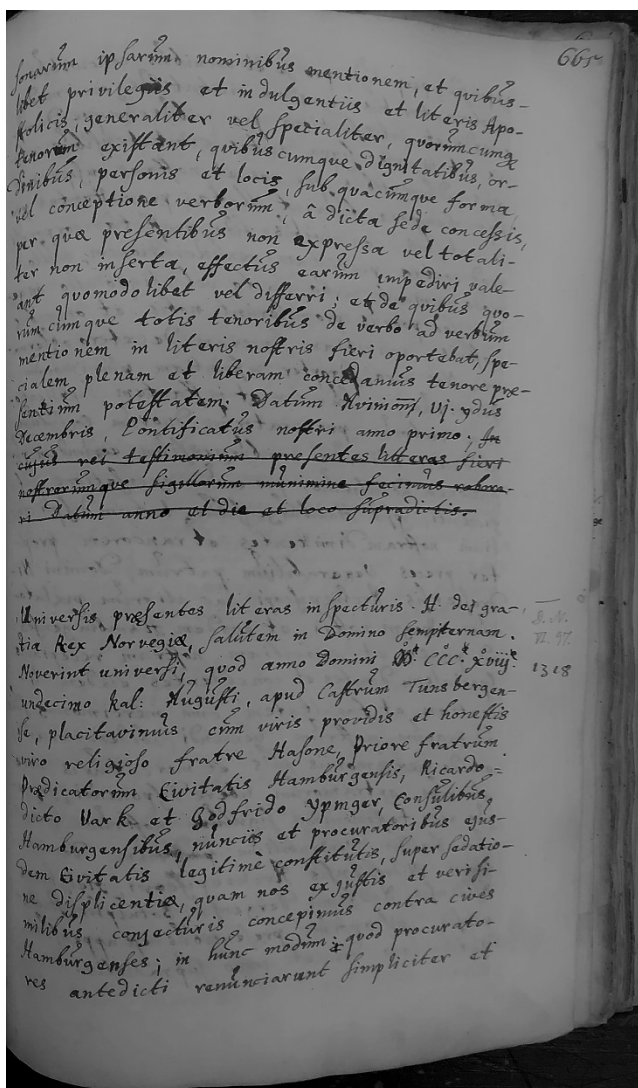 665
sonarum ipsarum nominibus mentionem, et quibus-
libet privilegiis et indulgentiis et literis Apo-
stolicis, generaliter vel specialiter, quorumcumq̃
tenorum existant, quibuscumque dignitatibus, or-
dinibus, personis et locis, sub quacumque forma,
vel conceptione verborum, â dicta sede concessis,
per quæ presentibus non expressa vel totali-
ter non inserta, effectus earum impediri vale-
ant quomodolibet vel differri; et de quibus quo-
rumcumque totis tenoribus de verbo ad verbum
mentionem in literis nostris fieri oportebat, spe-
cialem plenam et liberam concedamus tenore pre-
sentium potestatem. Datum Avinioñ, vj. ydus
Decembris, Pontificatus nostri anno primo. In
cujus rei testimonium presentes litteras fieri
nostrorumque sigillorum munimine fecimus robora-
ri Datum anno et die et loco supradictis.
Universis, præsentes literas inspecturis. H. dei gra-
tia Rex Norvegiæ, salutem in Domino sempiternam.
D. N.
VI. 97.
Noverint universi, quod anno Domini M° CCC° xviij°
1318
undecimo Kal: Augusti, apud Castrum Tunsbergen-
se, placitavimus, cum viris providis et honestis
viro religioso fratre Hasone, Priore fratrum
Prædicatorum Civitatis Hamburgensis, Ricardo
dicto Vark et Godfrido ypmger, Consulibus
Hamburgensibus, nunciis et procuratoribus ejus-
dem Civitatis legitimè constitutis, super sedatio-
ne displicentiæ, quam nos ex justis et verisi-
milibus conjecturis concepimus contra cives
Hamburgenses; in hunc modum: quod procurato-
res antedicti renunciarunt simpliciter et